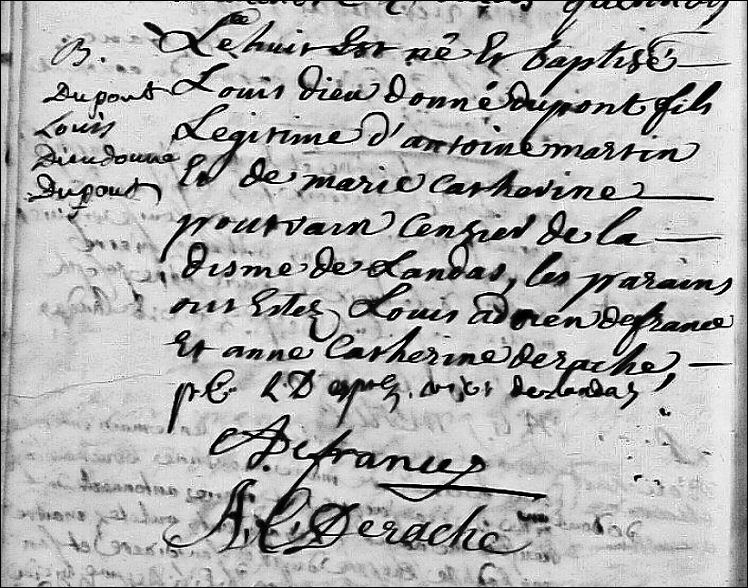 B.
Dupont
Louis
Dieudonne
Dupont
Le huit Est né Et baptisé
Louis dieu donné dupont fils
Legitime d'antoine martin
Et de marie Catherine
pourvain Censier de la
disme de Landas, les parains
ont Estez Louis adrien defrance
Et anne Catherine derache,
de landas
Defrance
A. C. Derache